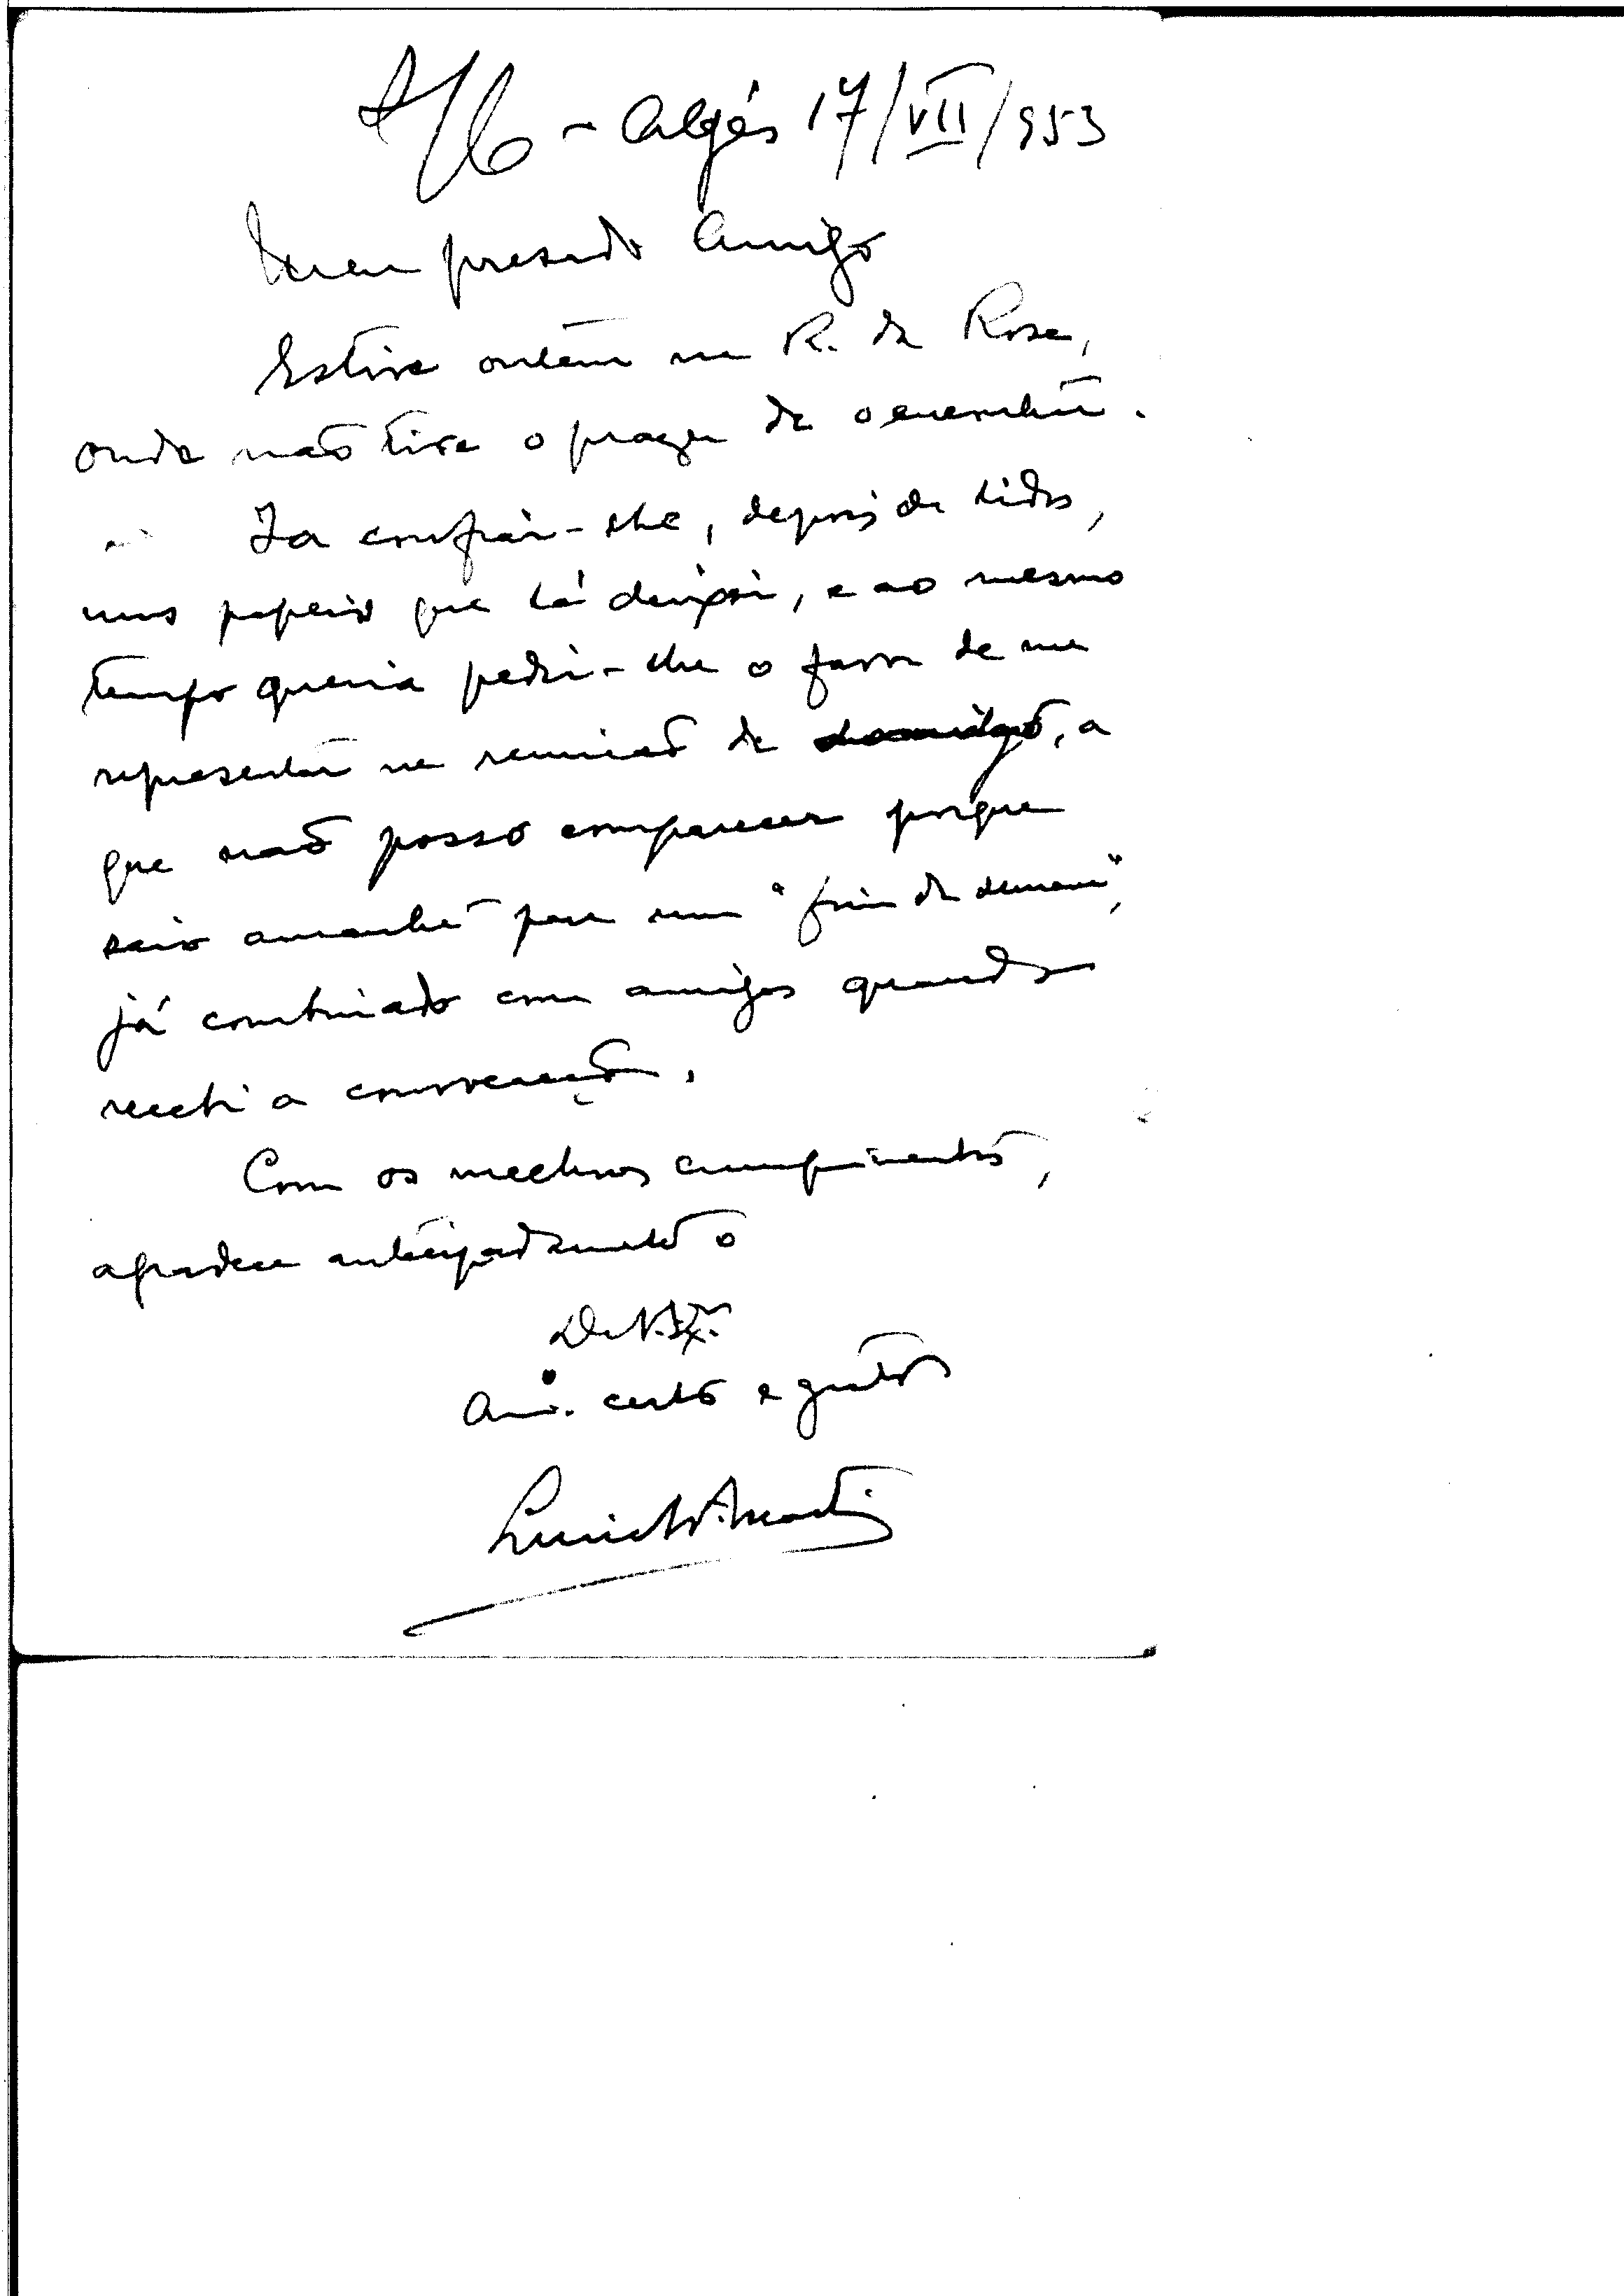 Algés 17/VII/953
Meu presado Amigo
Estive ontem na R. da Rosa,
onde não tive o prazer de o encontrar.
Ia confiar-lhe, depois de lidos,
uns papeis que lá deixei, e ao mesmo
tempo queria pedir-lhe o favor de me
representar na reunião de domingo, a
que não posso comparecer porque
saio amanhã para um "fim de semana",
já combinado com amigos quando
recebi a convocação.
Com os melhores cumprimentos,
agradece antecipadamente o
De V. Ex.
Am.º certo e grato